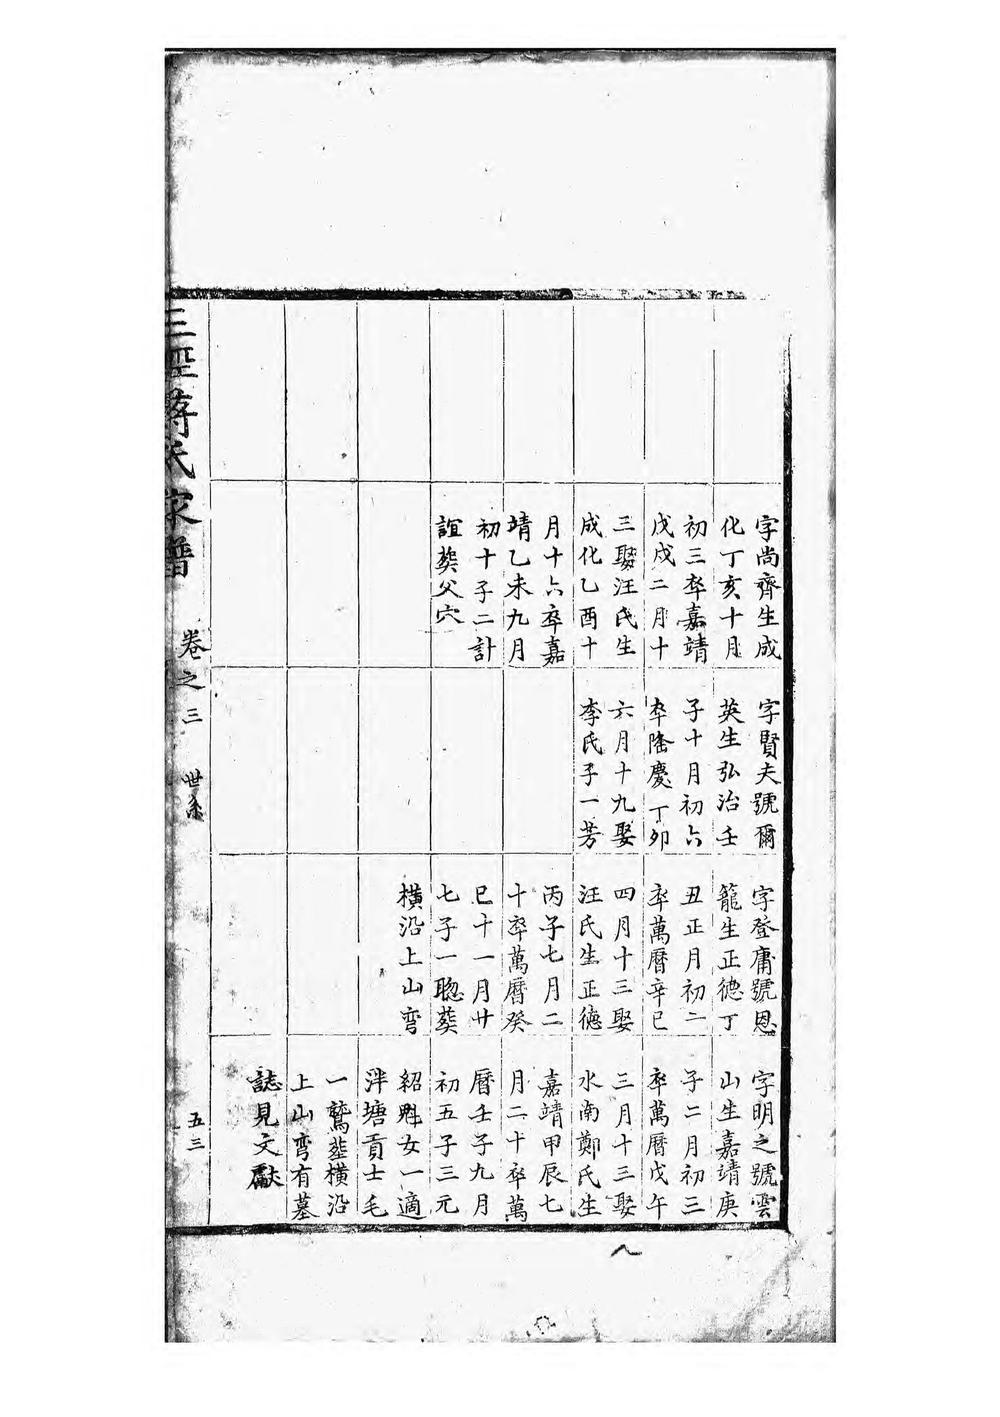 字尚齊生成
化丁亥十月
初三卒嘉靖
戊戌二月十
三娶汪氏生
成化乙酉十
月十六卒嘉
靖乙未九月
初十子二計
誼葬父穴
字賢夫號爾
英生弘治壬
子十月初六
卒隆慶丁卯
六月十九娶
李氏子一芳
字登庸號恩
龍生正德丁
丑正月初二
卒萬曆辛巳
四月十三娶
汪氏生正德
丙子七月二
十卒萬曆癸
巳十一月廿
七子一聰葬
橫沿上山彎
字明之號雲
山生嘉靖庚
子二月初三
卒萬曆戊午
三月十三娶
水南鄭氏生
嘉靖甲辰七
月二十卒萬
曆壬子九月
初五子三元
紹魁女一適
泮塘貢士毛
一鷺塟橫沿
上山彎有墓
誌見文獻
三逕蔣氏家譜
卷之三
世系
五三